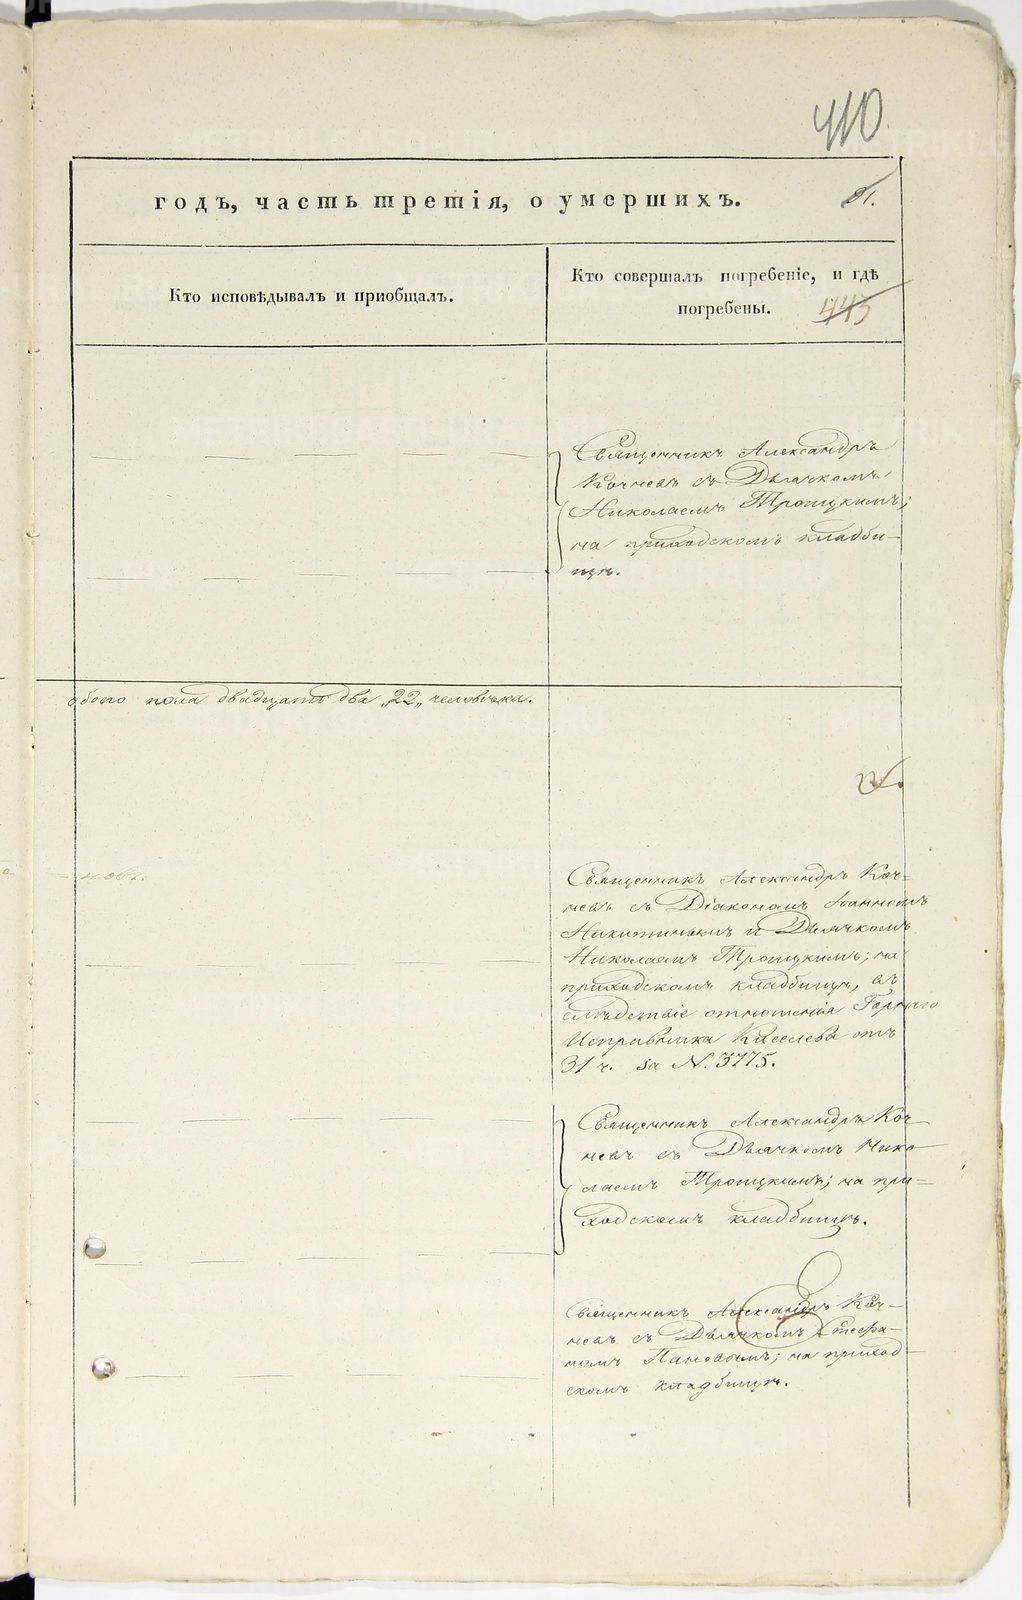 410
годъ, часть третія, о умершихъ.
81.
Кто исповѣдывалъ и пріобщалъ.
Кто совершалъ погребеніе, и гдѣ
погребены.
443
Священникъ Александръ
Кочневъ съ Дьячкомъ
Николаемъ Троицкимъ;
на приходскомъ кладби-
щѣ.
обоего пола двадцать два „22„ человѣка.
Священникъ Александръ Коч=
невъ съ Діакономъ Іоанномъ
Никитинымъ и Дьячкомъ
Николаемъ Троицкимъ; на
приходскомъ кладбищѣ, въ
слѣдствіе отношенія Горнаго
Исправника Киселева отъ
31 ч. за N. 3775.
Священникъ Александръ Коч-
невъ съ Дьячкомъ Нико-
лаемъ Троицкимъ; на при=
ходскомъ кладбищѣ.
Священникъ Александръ Коч-
невъ съ Дьячкомъ Стефа-
номъ Пановымъ; на приход-
скомъ кладбищѣ.
METRIKI.GASO-URAL.RU